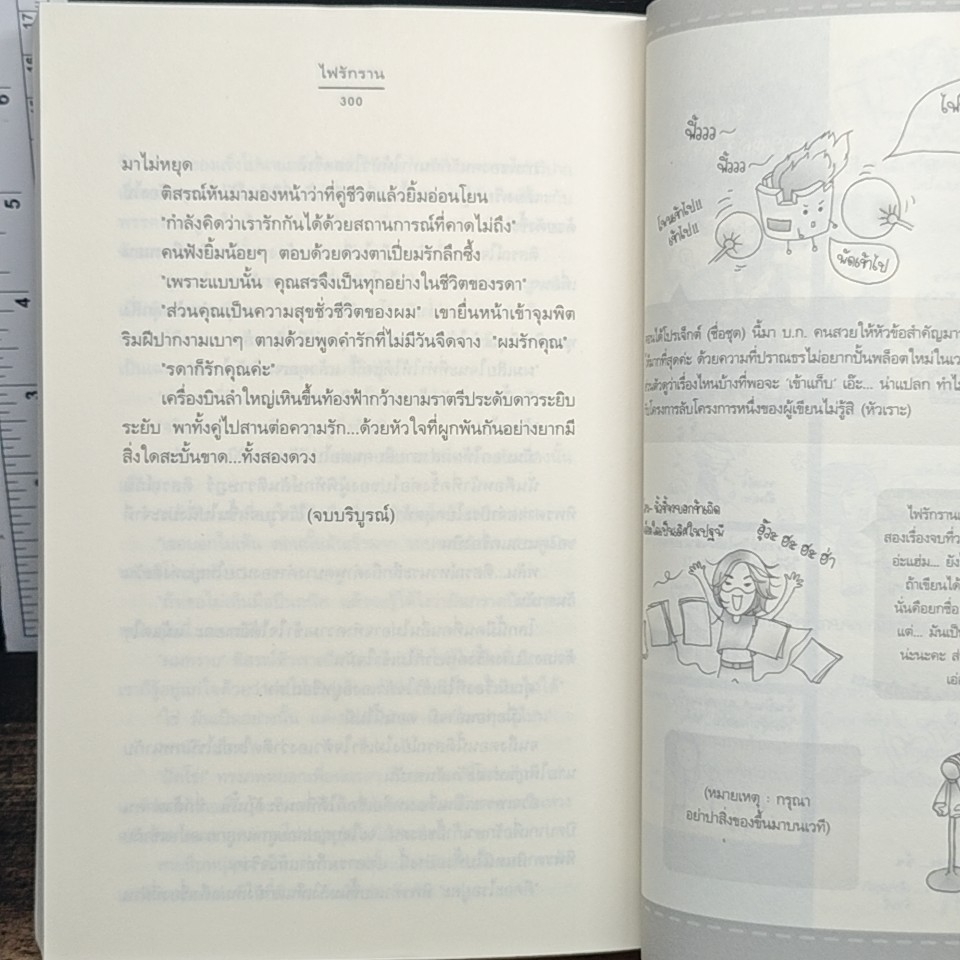 ไฟรักราน
300
มาไม่หยุด
ติสรณ์หันมามองหน้าว่าที่คู่ชีวิตแล้วยิ้มอ่อนโยน
"กำลังคิดว่าเรารักกันได้ด้วยสถานการณ์ที่คาดไม่ถึง"
คนฟังยิ้มน้อยๆ ตอบด้วยดวงตาเปี่ยมรักลึกซึ้ง
"เพราะแบบนั้น คุณสรจึงเป็นทุกอย่างในชีวิตของรดา"
"ส่วนคุณเป็นความสุขชั่วชีวิตของผม" เขายื่นหน้าเข้าจุมพิต
ริมฝีปากงามเบาๆ ตามด้วยพูดคำรักที่ไม่มีวันจืดจาง "ผมรักคุณ"
"รดาก็รักคุณค่ะ"
เครื่องบินลำใหญ่เหินขึ้นท้องฟ้ากว้างยามราตรีประดับดาวระยิบ
ระยับ พาทั้งคู่ไปสานต่อความรัก...ด้วยหัวใจที่ผูกพันกันอย่างยากมี
สิ่งใดสะบั้นขาด...ทั้งสองดวง
(จบบริบูรณ์)
ฟิ้วววว~
ฟิ้วววว~
เผาเข้าไป!!
เข้าไป!!
พัดเข้าไป
ได้โปรเจ็กต์ (ชื่อชุด) นี้มา บ.ก. คนสวยให้หัวข้อสำคัญมา
มากที่สุดค่ะ ด้วยความที่ปราณธรไม่อยากปั้นพล็อตใหม่ในเว
ว่าเรื่องไหนบ้างที่พอจะ 'เข้าแก็บ' เอ๊ะ... น่าแปลก ทำไ
โครงการลับโครงการหนึ่งของผู้เขียนไม่รู้สิ (หัวเราะ)
ฮู้ว~ ฮ่ะ ฮ่ะ ฮ่า
ไฟรักราน
สองเรื่องจบที่ว
อ่ะแฮ่ม... ยังไ
ถ้าเขียนได้
นั่นคือยกชื่อ
แต่... มันเป็
น่ะนะคะ ส
เอ
(หมายเหตุ : กรุณา
อย่าปาสิ่งของขึ้นมาบนเวที)
17
6
5
4
3